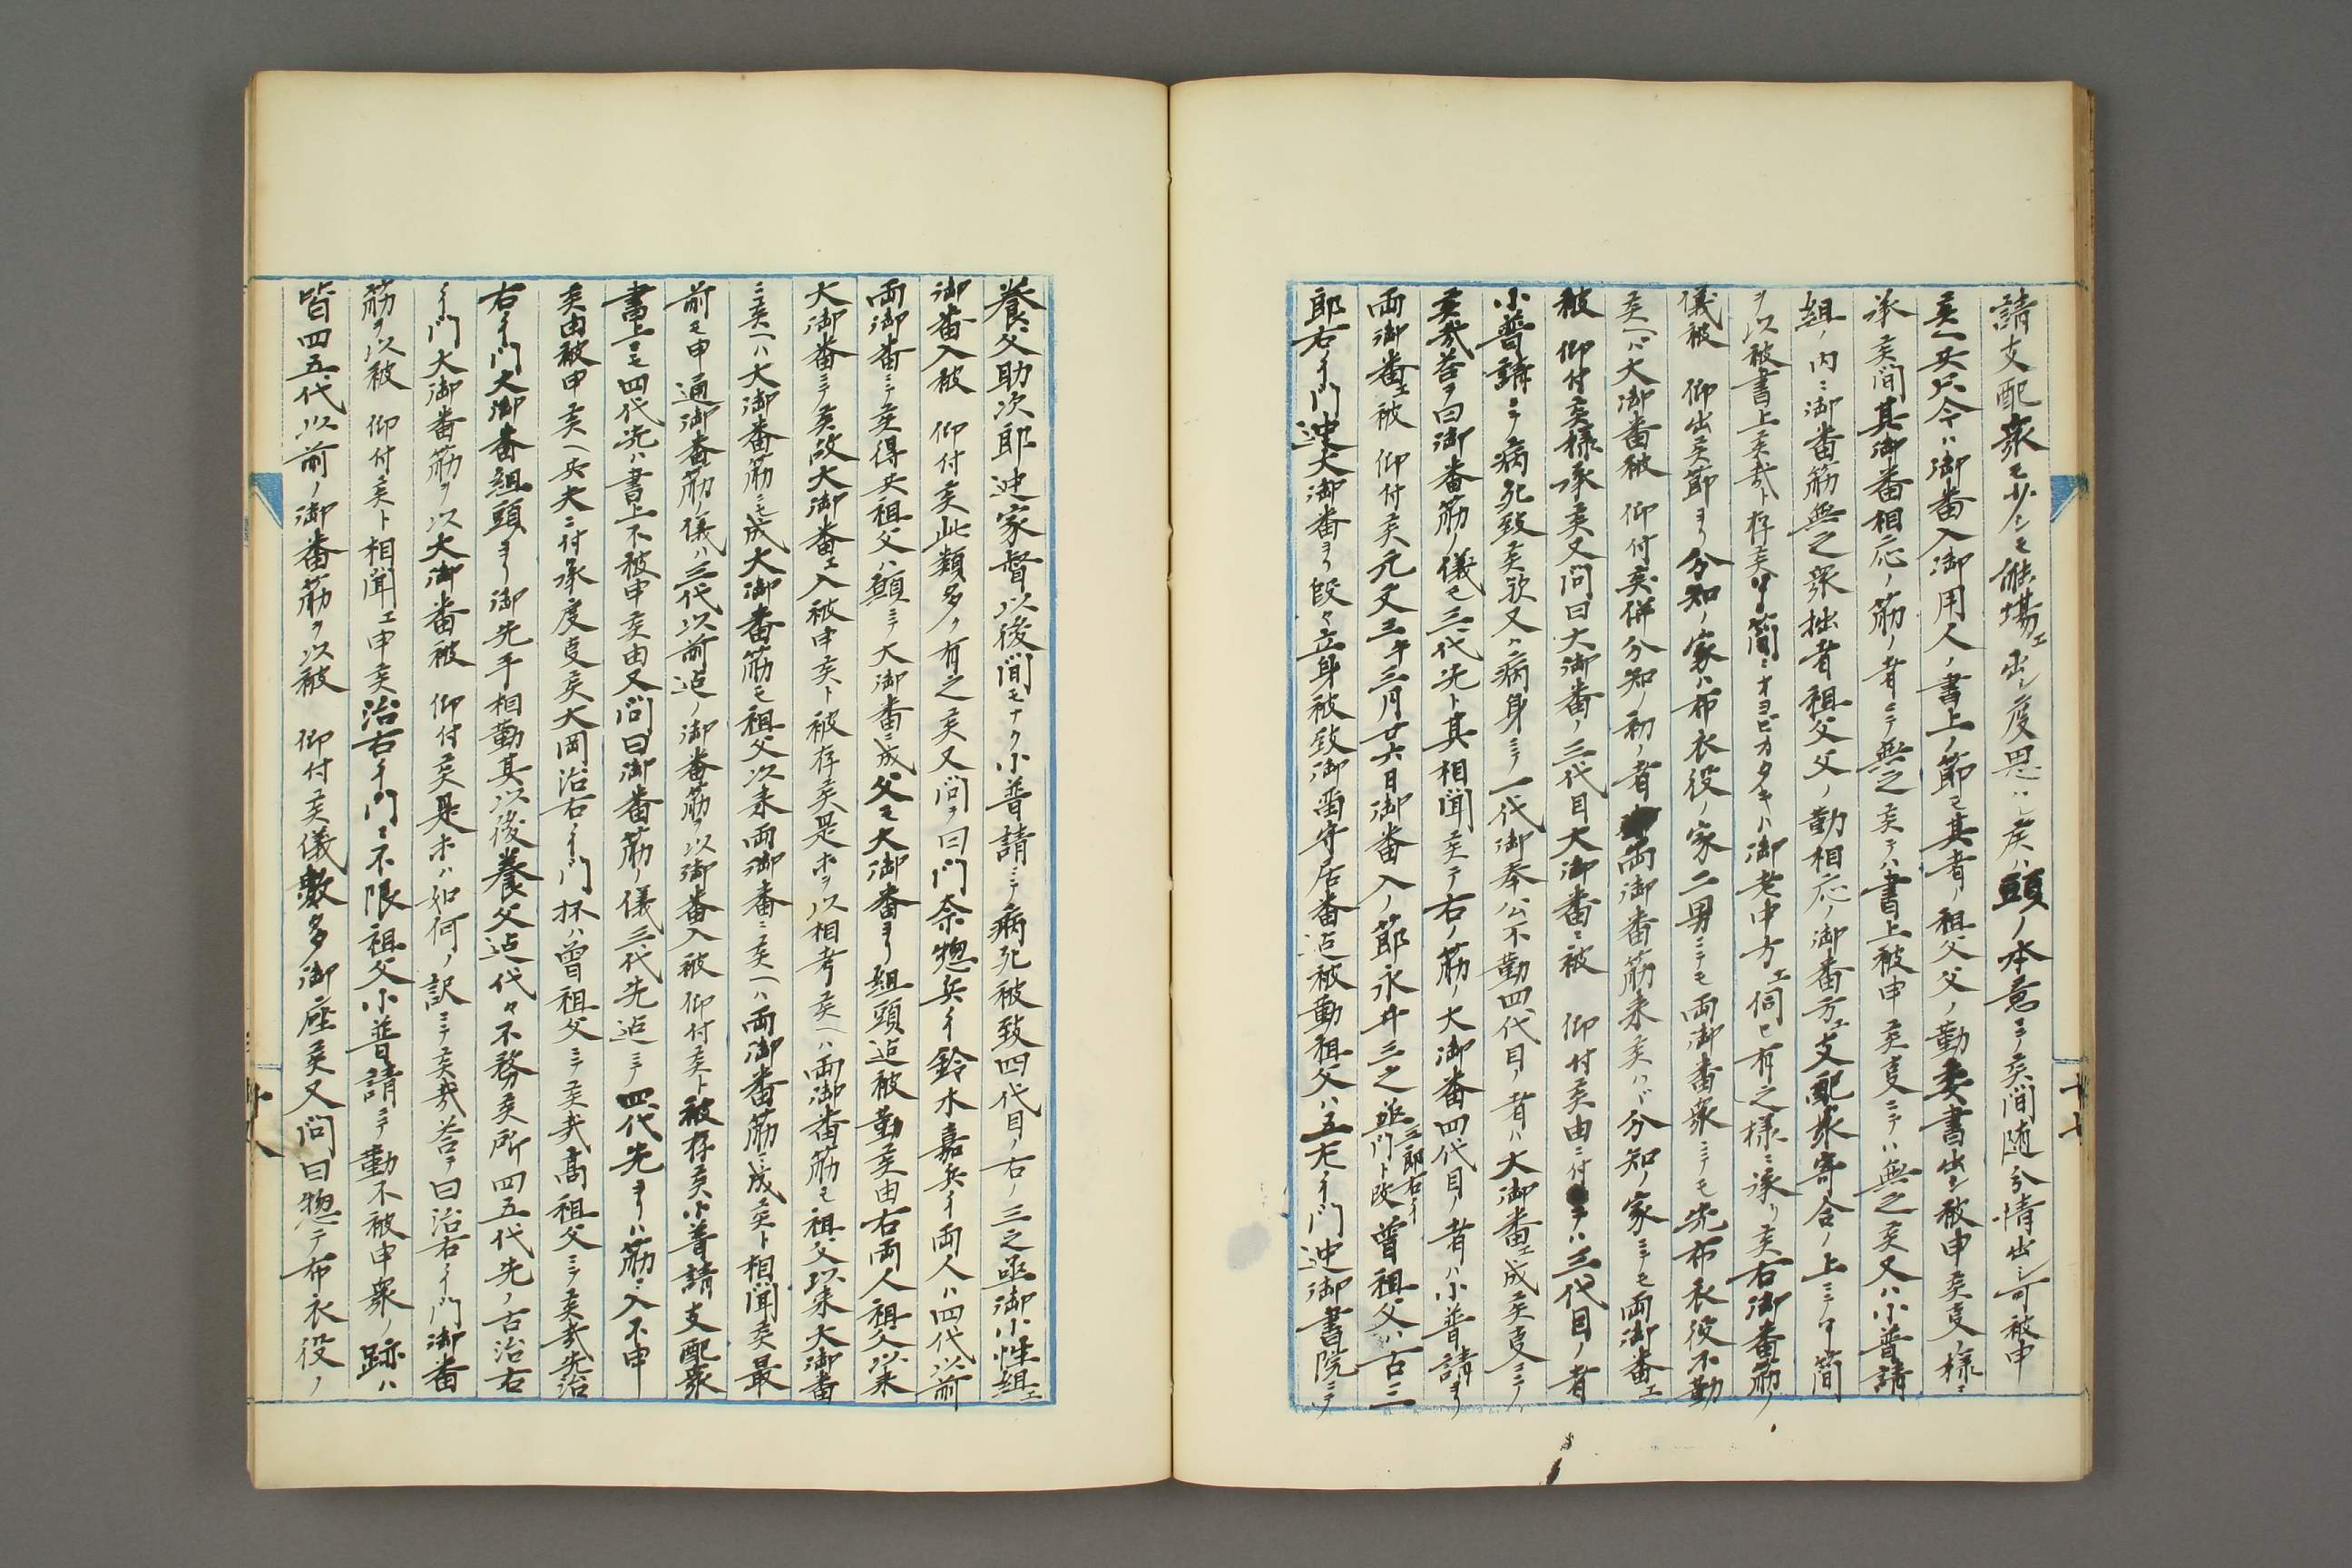 請支配衆モ少シモ能場エ出シ度思ハレ候ハ頭ノ本意ニテ候間随分情出シ可被申
候ヘ共只今ハ御番入御用人ノ書上ノ節モ其者ノ祖父父ノ勤委書出シ被申候支様ニ
承候間其御番相応ノ筋ノ者ニテ無之候テハ書上被申候支ニテハ無之候又ハ小普請
組ノ内ニ御番筋無之衆拙者祖父父ノ勤相応ノ御番方エ支配衆寄合ノ上ニテ了簡
ヲ以被書上候哉ト存候了簡ニオヨビカタキハ御老中方エ伺モ有之様ニ承リ候右御番筋ノ
儀被 仰出候節ヨリ分知ノ家ハ布衣役ノ家二男ニテモ両御番衆ニテモ先布衣役不勤
候ヘバ大御番被 仰付候併分知ノ初ノ者両御番筋来候ハヾ分知ノ家ニテモ両御番エ
被 仰付候様承候又問曰大御番ノ三代目大御番ニ被 仰付候由ニ付テハ三代目ノ者
小普請ニテ病死致候歟又ハ病身ニテ一代御奉公不勤四代目ノ者ハ大御番エ成候支ニテ
候哉荅テ曰御番筋ノ儀モ三代先ト其相聞候テ右ノ筋ノ大御番四代目ノ者ハ小普請ヨリ
両御番エ被 仰付候元文三午三月廿六日御番入ノ節永井三之丞三郎右イ門ト改曽祖父ハ古三
郎右イ門迚大御番ヨリ段々立身被致御留守居番迄被勤祖父ハ五左イ門迚御書院ニテ
養父助次郎迚家督以後間モナク小普請ニテ病死被致四代目ノ右ノ三之丞御小性組エ
御番入被 仰付候此類多ク有之候又問テ曰門奈惣兵イ鈴木嘉兵イ両人ハ四代以前
両御番ニテ候得共祖父ハ願ニテ大御番ニ成父モ大御番ヨリ組頭迄被勤候由右両人祖父以来
大御番ニテ候故大御番エ入被申候ト被存候是ホヲ以相考候ヘハ両御番筋モ祖父以来大御番
ニ候ヘハ大御番筋ニモ成大御番筋モ祖父以来両御番ニ候ヘハ両御番筋ニ成候ト相聞候最
前モ申通御番筋ノ儀ハ三代以前迄ノ御番筋ヲ以御番入被 仰付候ト被存候小普請支配衆
書上モ四代先ハ書上不被申候由又問曰御番筋ノ儀三代先迄ニテ四代先ヨリハ筋ニ入不申
候由被申候ヘ共夫ニ付承度支候大岡治右イ門抔ハ曽祖父ニテ候哉高祖父ニテ候哉先治
右イ門大御番組頭ヨリ御先手相勤其以後養父迄代々不務候所四五代先ノ古治右
イ門大御番筋ヲ以大御番被 仰付候是ホハ如何ノ訳ニテ候哉荅テ曰治右イ門御番
筋ヲ以被 仰付候ト相聞エ申候治右イ門ニ不限祖父小普請ニテ勤不被申衆ノ跡ハ
皆四五代以前ノ御番筋ヲ以被 仰付候儀數多御座候又問曰惣テ布衣役ノ